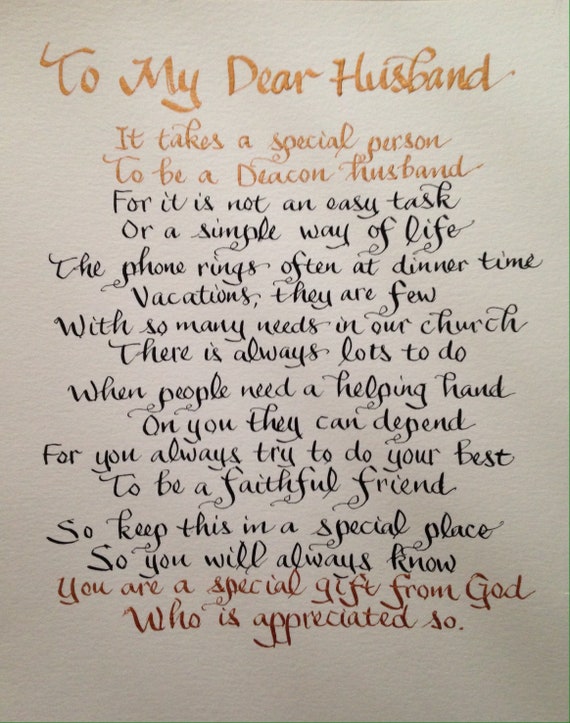 To My Dear Husband
It takes a special person
To be a Deacon husband
For it is not an easy task
Or a simple way of life
The phone rings often at dinner time
Vacations, they are few
With so many needs in our church
There is always lots to do
When people need a helping hand
On you they can depend
For you always try to do your best
To be a faithful friend
So keep this in a special place
So you will always know
You are a special gift from God
Who is appreciated so.